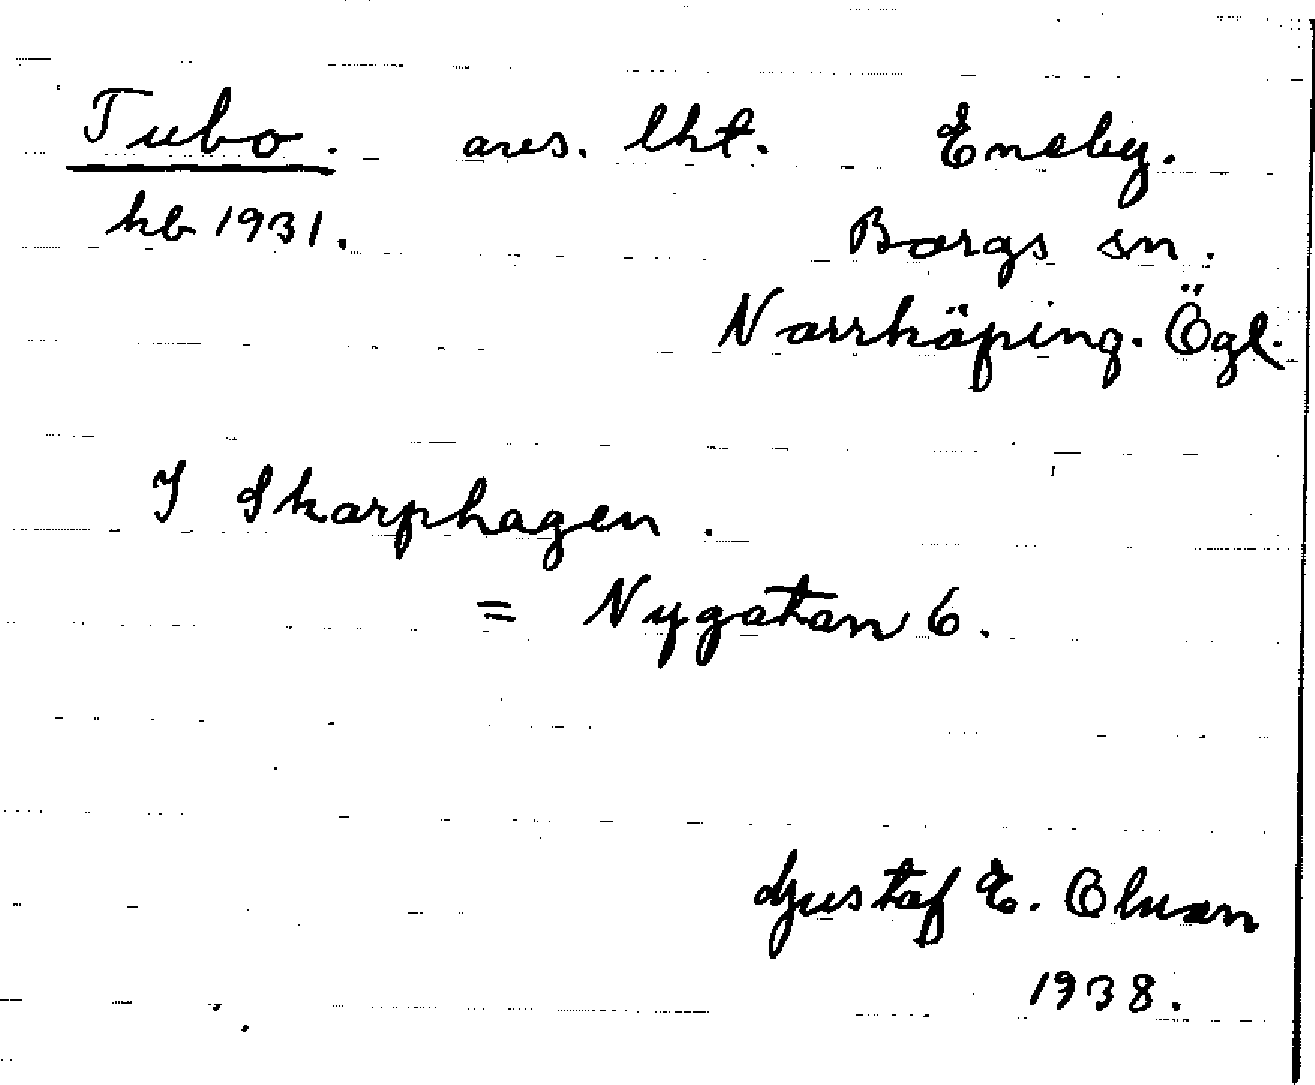 Tubo. avs. lht. Eneby.
kb 1931. Borgs sn.
Norrköping. Ögl.
I Skarphagen.
= Nygatan 6.
Gustaf E. Olsson
1938.